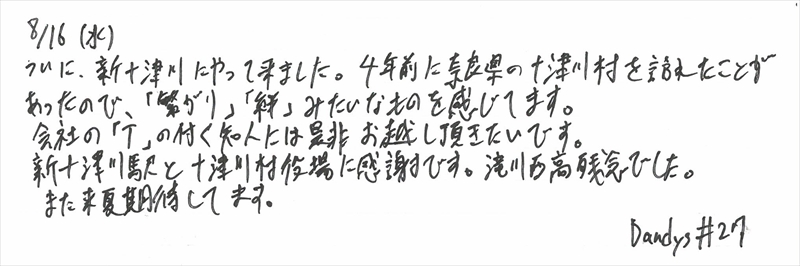 8/16 (水)
ついに、新十津川にやって来ました。4年前に奈良県の十津川村を訪れたことが
あったので、「繋がり」「絆」みたいなものを感じてます。
会社の「T」の付く知人には是非お越し頂きたいです。
新十津川駅と十津川村役場に感謝です。滝川西高残念でした。
また来夏期待してます。
Dandys#27